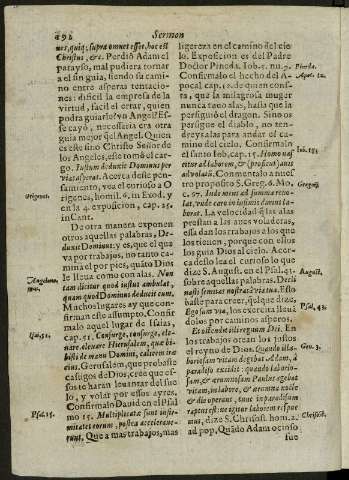 292 Sermon
nes, quia; supra omnes esset, hoc est
Christus, &c. Perdió Adam el
parayso, mal pudiera tornar
a el sin guia, siendo su cami
no entre asperas tentacio-
nes: dificil la empresa de la
virtud, facil el errar, quien
podra guiarle? vn Angel? Es-
se cayó, necessaria era otra
guia mejor que Angel. Quien
es este sino Christo Señor de
los Angeles, este tomó el car-
go. Iustum deduxit Dominus per
vias asperas. Acerca deste pen-
samiento, vea el curioso a O
rigenes, homil. 6. in Exod. y
en la 4. exposicion, cap. 25.
in Cant.
De otra manera exponen
otros aquellas palabras, De-
duxit Dominus: y es, que el que
va por trabajos, no tanto ca-
mina el por pies, quãto Dios
le lleua como con alas. Non
tam dicitur quod iustus ambulat,
quam quod Dominus deduxit eum.
Muchos lugares ay que con-
firman este assumpto. Confir
malo aquel lugar de Isaias,
cap. 51. Consurge, consurge, ele-
uare eleuare Hierusalem, quæ bi-
bisti de manu Domini, calicem iræ
eius. Gerusalem, que probaste
castigos de Dios, cree que es-
sos te haran leuantar del sue
lo, y volar por essos ayres.
Confirmalo Dauid en el Psal
mo 15. Multiplicatæ sunt infir-
mitates eorum, postea accelerave-
runt. Que a mas trabajos, mas
ligereza en el camino del cie
lo. Exposicion es del Padre
Doctor Pineda. Iob. 1. nu. 7.
Confirmalo el hecho del A-
pocal. cap. 12. de quien cons-
ta, que la milagrosa muger
nunca tuuo alas, hasta que la
persiguió el dragon. Sino os
persigue el diablo, no ten-
dreys alas para andar el ca-
mino del cielo. Confirmalo
el santo Iob, cap. 15. Homo nas
citur ad laborem, & auis
ad volandũ. Comentalo a nues
tro proposito S. Greg. 6. Mo.
c. 67. Inde mens ad summa reuo-
lat, vnde caro in infimis durius la-
borat. La velocidad q̃ las alas
prestan a las aues voladeras,
essa dan los trabajos a los que
los tienen, porque con essos
van los justos al cielo. Acer-
ca desto lea el curioso lo que
dize S. August. en el Psal. 43.
sobre aquellas palabras. Decli
nasti semitas nostras à via tua. Esto
baste para creer, q̃ el que dize,
Ego sum via, los exercita lleuã
dolos por caminos asperos.
Et ostendit illi regnum Dei. En
los trabajos orean los justos
el reyno de Dios. Quando illa-
boriosam vitam degebat Adam, à
paradyso excidit: quando laborio-
sam, & ærumnosam Paulus agebat
vitam, in labore, & ærumna nocte
& die operans, tunc in paradisum
rapens est: ne igitur labores respua-
mus, dize S. Chrisost. hom. 2.
ad pop. Quãdo Adam ocioso
fue
Origenes.
Isai. 51.
Psal. 15.
Pineda.
Apoc. 12.
Iob. 15.
August.
Psal. 43.
Gen. 3.